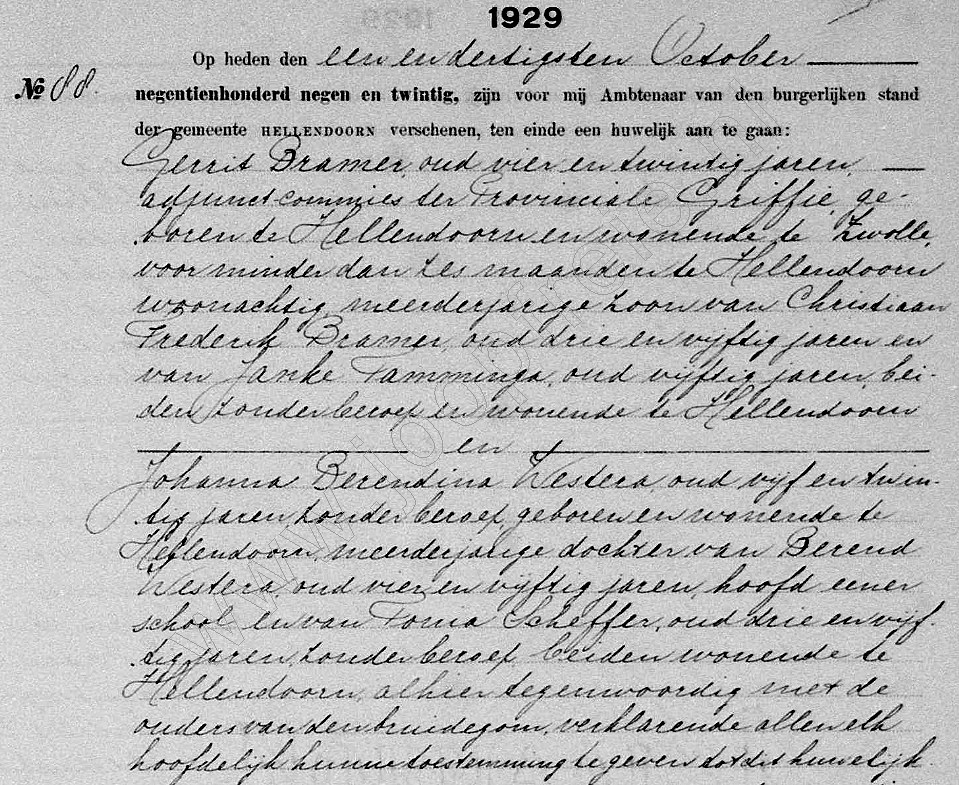 1929
Op heden den een en dertigsten October
No 88.
negentienhonderd negen en twintig, zijn voor mij Ambtenaar van den burgerlijken stand
der gemeente HELLENDOORN verschenen, ten einde een huwelijk aan te gaan:
Gerrit Bramer, oud vier en twintig jaren,
adjunct commies ter Provinciale Griffie, ge-
boren te Hellendoorn en wonende te Zwolle,
voor minder dan zes maanden te Hellendoorn
woonachtig, meerderjarige zoon van Christiaan
Frederik Bramer, oud drie en vyftig jaren en
van Janke Tamminga, oud vyftig jaren, bei-
den zonder beroep en wonende te Hellendoorn
en
Johanna Berendina Westera, oud vyf en twin-
tig jaren, zonder beroep, geboren en wonende te
Hellendoorn, meerderjarige dochter van Berend
Westera, oud vier en vyftig jaren, hoofd eener
school en van Tonia Scheffer, oud drie en vyf-
tig jaren, zonder beroep, beiden wonende te
Hellendoorn, alhier tegenwoordig met de
ouders van den bruidegom, verklarende allen elk
hoofdelijk hunne toestemming te geven dat dit huwelijk